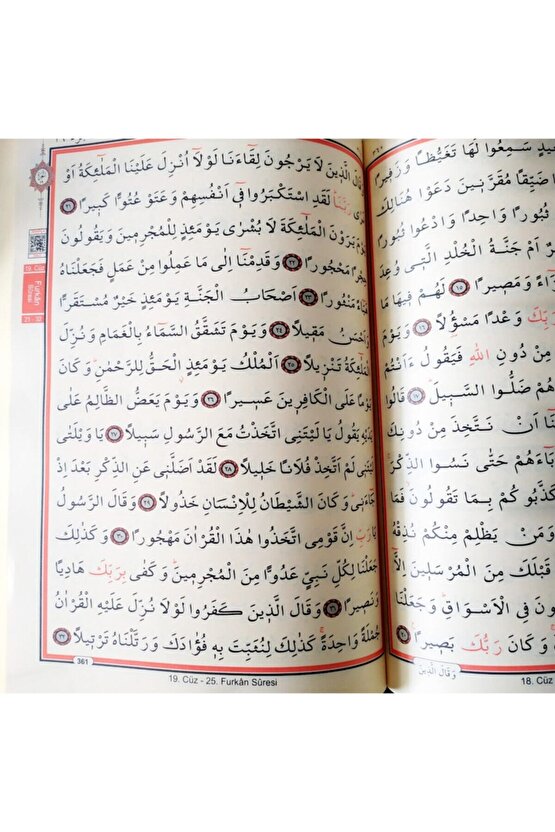 سَمِعُوا لَهَا تَغَيُّظاً وَزَفِيراً
ضَيِّقاً مُقَرَّنِينَ دَعَوْا هُنَالِكَ
ثُبُوراً وَاحِداً وَادْعُوا ثُبُوراً
اَمْ جَنَّةُ الْخُلْدِ الَّتِي وُعِدَ
وَمَصِيراً ١٥ لَهُمْ فِيهَا مَا
رَبِّكَ وَعْداً مَسْؤُلاً ١٦ وَيَوْمَ
مِنْ دُونِ اللّٰهِ فَيَقُولُ ءَاَنْتُمْ
هُمْ ضَلُّوا السَّبِيلَ ١٧ قَالُوا
اَنْ نَتَّخِذَ مِنْ دُونِكَ
حَتّٰى نَسُوا الذِّكْرَ
كَذَّبُوكُمْ بِمَا تَقُولُونَ فَمَا
وَمَنْ يَظْلِمْ مِنْكُمْ نُذِقْهُ
قَبْلَكَ مِنَ الْمُرْسَلِينَ اِلَّا
فِي الْاَسْوَاقِ وَجَعَلْنَا
وَكَانَ رَبُّكَ بَصِيراً ٢٠
وَقَالَ الَّذِينَ
18. Cüz
وَقَالَ الَّذِينَ لَا يَرْجُونَ لِقَاءَنَا لَوْلَا اُنْزِلَ عَلَيْنَا الْمَلٰٓئِكَةُ اَوْ
نَرٰى رَبَّنَا لَقَدِ اسْتَكْبَرُوا فِي اَنْفُسِهِمْ وَعَتَوْ عُتُوّاً كَبِيراً ٢١
يَوْمَ يَرَوْنَ الْمَلٰٓئِكَةَ لَا بُشْرٰى يَوْمَئِذٍ لِلْمُجْرِمِينَ وَيَقُولُونَ
حِجْراً مَحْجُوراً ٢٢ وَقَدِمْنَا اِلٰى مَا عَمِلُوا مِنْ عَمَلٍ فَجَعَلْنَاهُ
هَبَاءً مَنْثُوراً ٢٣ اَصْحَابُ الْجَنَّةِ يَوْمَئِذٍ خَيْرٌ مُسْتَقَرّاً
وَاَحْسَنُ مَقِيلاً ٢٤ وَيَوْمَ تَشَقَّقُ السَّمَاءُ بِالْغَمَامِ وَنُزِّلَ
الْمَلٰٓئِكَةُ تَنْزِيلاً ٢٥ اَلْمُلْكُ يَوْمَئِذٍ الْحَقُّ لِلرَّحْمٰنِ وَكَانَ
يَوْماً عَلَى الْكَافِرِينَ عَسِيراً ٢٦ وَيَوْمَ يَعَضُّ الظَّالِمُ عَلٰى
يَدَيْهِ يَقُولُ يَا لَيْتَنِي اتَّخَذْتُ مَعَ الرَّسُولِ سَبِيلاً ٢٧ يَا وَيْلَتٰى
لَيْتَنِي لَمْ اَتَّخِذْ فُلَاناً خَلِيلاً ٢٨ لَقَدْ اَضَلَّنِي عَنِ الذِّكْرِ بَعْدَ اِذْ
جَاءَنِي وَكَانَ الشَّيْطَانُ لِلْاِنْسَانِ خَذُولاً ٢٩ وَقَالَ الرَّسُولُ
يَا رَبِّ اِنَّ قَوْمِي اتَّخَذُوا هٰذَا الْقُرْاٰنَ مَهْجُوراً ٣٠ وَكَذٰلِكَ
جَعَلْنَا لِكُلِّ نَبِيٍّ عَدُوّاً مِنَ الْمُجْرِمِينَ وَكَفٰى بِرَبِّكَ هَادِياً
وَنَصِيراً ٣١ وَقَالَ الَّذِينَ كَفَرُوا لَوْلَا نُزِّلَ عَلَيْهِ الْقُرْاٰنُ
جُمْلَةً وَاحِدَةً كَذٰلِكَ لِنُثَبِّتَ بِهِ فُؤَادَكَ وَرَتَّلْنَاهُ تَرْتِيلاً ٣٢
19. Cüz
Furkân
Sûresi
21 - 32
361
19. Cüz - 25. Furkân Sûresi